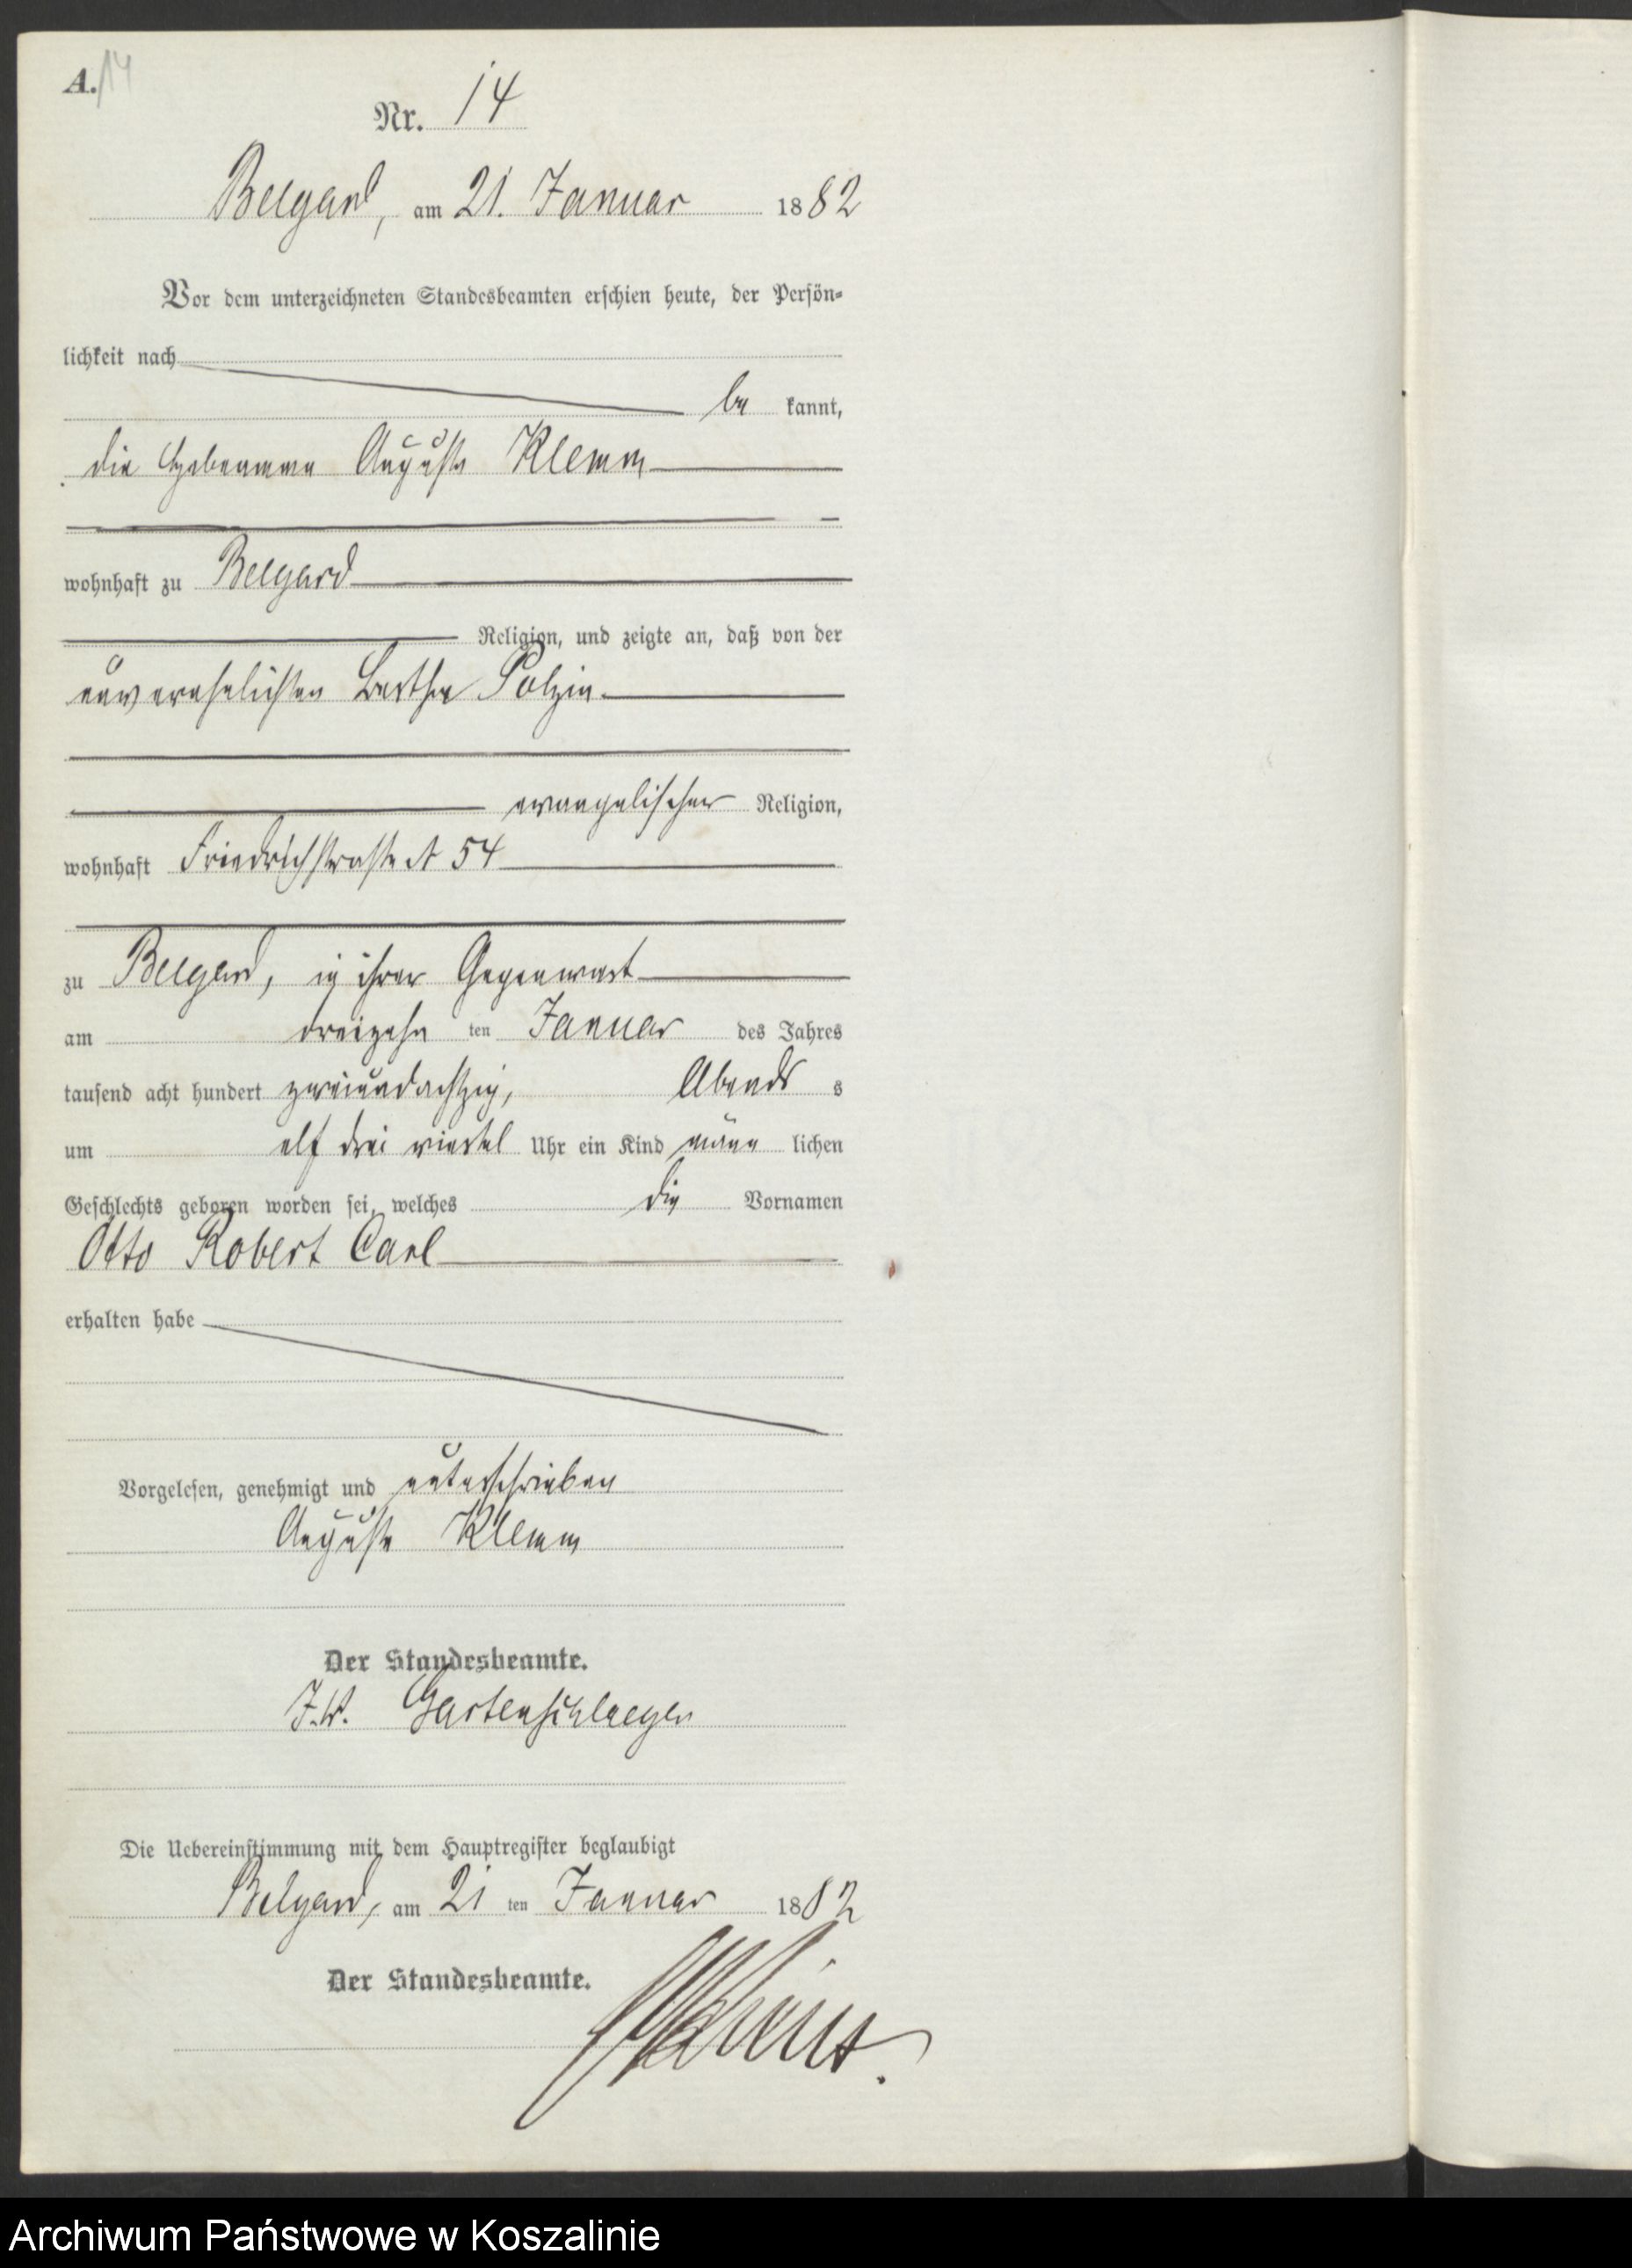 A. 14
Nr. 14
Belgard, am 21. Januar 1882
Vor dem unterzeichneten Standesbeamten erschien heute, der Persön-
lichkeit nach
be kannt,
die Hebeamme Auguste Klemm
wohnhaft zu Belgard
Religion, und zeigte an, daß von der
unverehelichten Bertha Polzin
evangelischer Religion,
wohnhaft Friedrichstraße № 54
zu Belgard, in ihrer Gegenwart
am dreizehn ten Januar des Jahres
tausend acht hundert zweiundachtzig, Abends s
um elf drei viertel Uhr ein Kind männ lichen
Geschlechts geboren worden sei, welches die Vornamen
Otto Robert Carl
erhalten habe
Vorgelesen, genehmigt und unterschrieben
Auguste Klemm
Der Standesbeamte.
J.V. Gartenschlaeger
Die Uebereinstimmung mit dem Hauptregister beglaubigt
Belgard, am 21 ten Januar 1882
Der Standesbeamte.
Archiwum Państwowe w Koszalinie